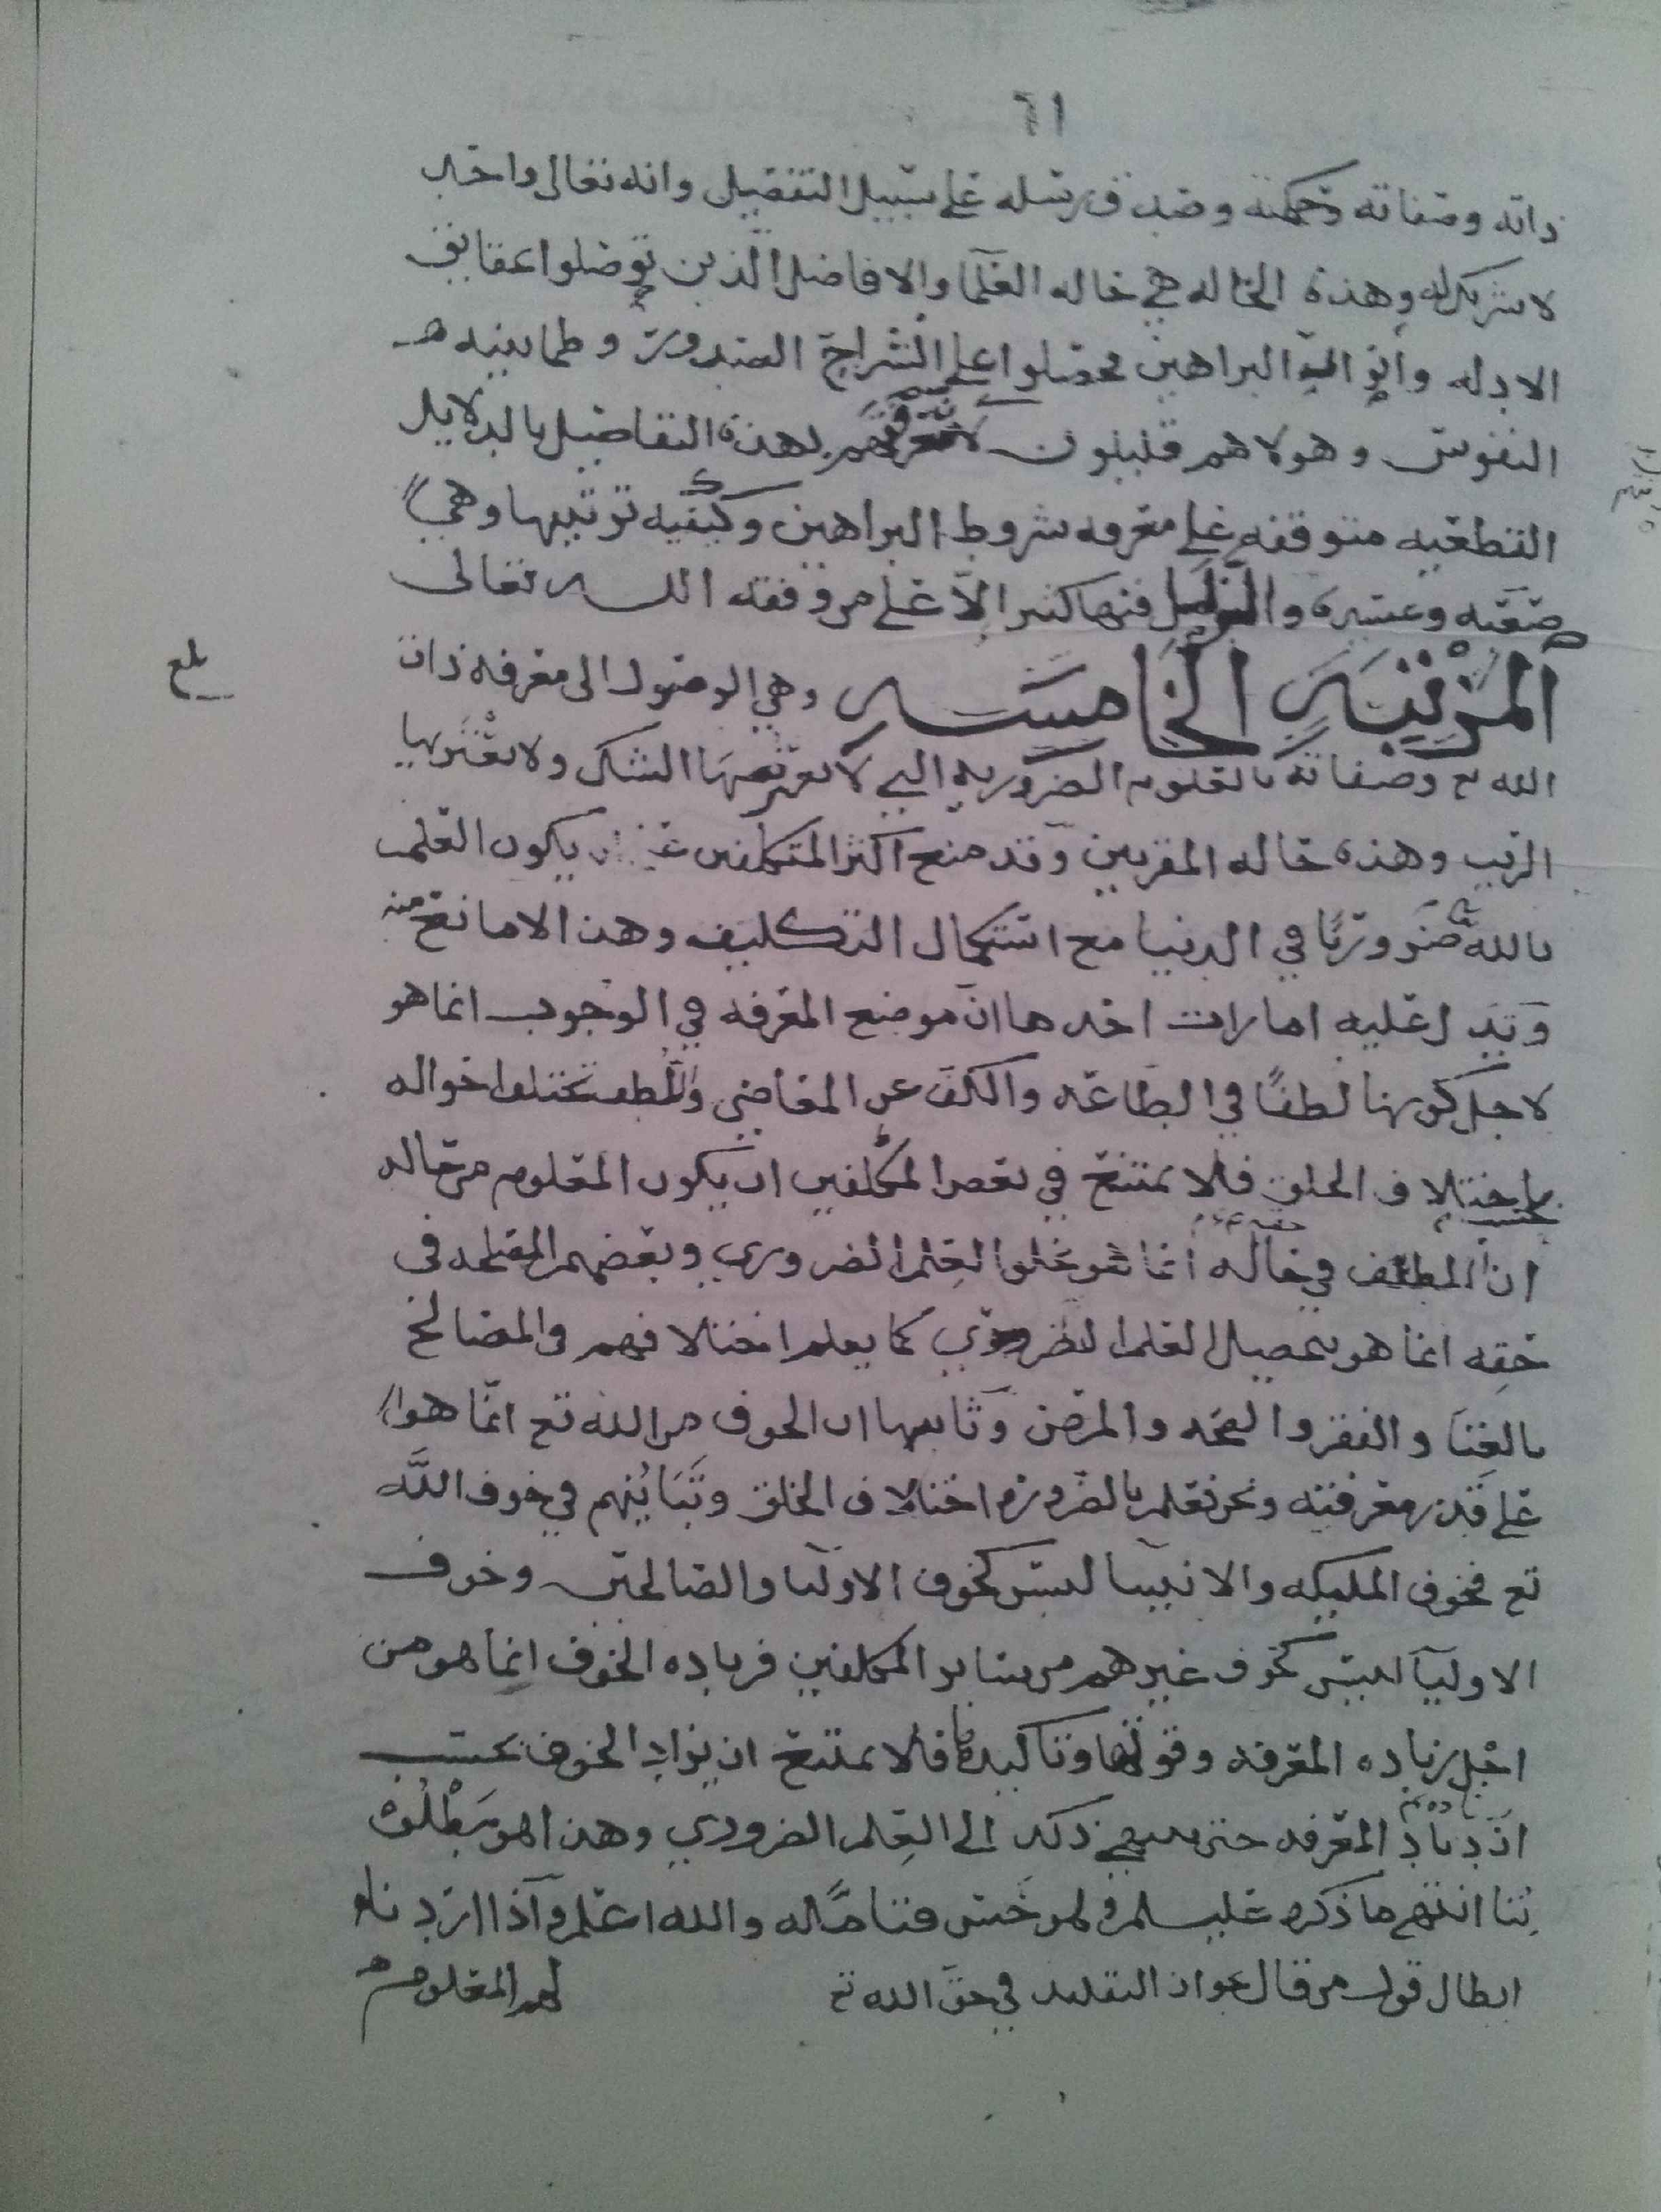 ٦١
ذاته وصفاته وحكمته وصدق رسله على سبيل التفصيل وانه تعالى واحد
لا شريك له وهذه الحاله هي حاله العلما والافاضل الذين توصلوا
الادله البراهين فحصلوا على انشراح الصدور وطمانينه
النفوس وهولا هم قليلون لان معرفتهم بهذه التفاصيل بالدلايل
القطعيه متوقفه على معرفه شروط البراهين وكيفيه ترتيبها وهي
صعبه وعسره فيها كثير الا على من وفقه الله تعالى
المرتبه الخامسه وهي الوصول الى معرفه ذات
بلغ
الله تع وصفاته بالعلوم الضروريه التي لا يعترضها الشك ولا يعتريها
الريب وهذه حاله المقربين وقد منع اكثر المتكلمين يكون العلم
بالله ضروريا في الدنيا مع استكمال التكليف وهذا لا مانع منه
ويدل عليه امارات احدها ان موضع المعرفه في الوجوب انما هو
لاجل كونها لطفا في الطاعه والكف عن المعاصي واللطف تختلف احواله
باختلاف الخلق فلا يمتنع في بعض المكلفين ان يكون المعلوم من حاله
ان اللطف في حاله انما هو العلم الضروري وبعضهم المصلحه في
حقه انما هو تحصيل العلم الضروري كما يعلم اختلافهم في المصالح
بالغنا والفقر والصحه والمرض وثانيها ان الخوف من الله تع انما هو
على قدر معرفته ونحن نعلم بالضروره اختلاف الخلق وتباينهم في خوف الله
تع فخوف المليكه والانبيا ليس كخوف الاوليا والصالحين وخوف
الاوليا ليس كخوف غيرهم من ساير المكلفين فزياده الخوف انما هو من
اجل زياده المعرفه وقوتها وتاكيدها فلا يمتنع ان يزاد الخوف بحسب
ازدياد المعرفه حتى ينتهي ذلك الى العلم الضروري وهذا هو مطلوبنا
انتهى ما ذكره عليلم ولم احسن فتامله والله اعلم واذا اردنا
ابطال قول من قال بجواز التقليد في حق الله تع